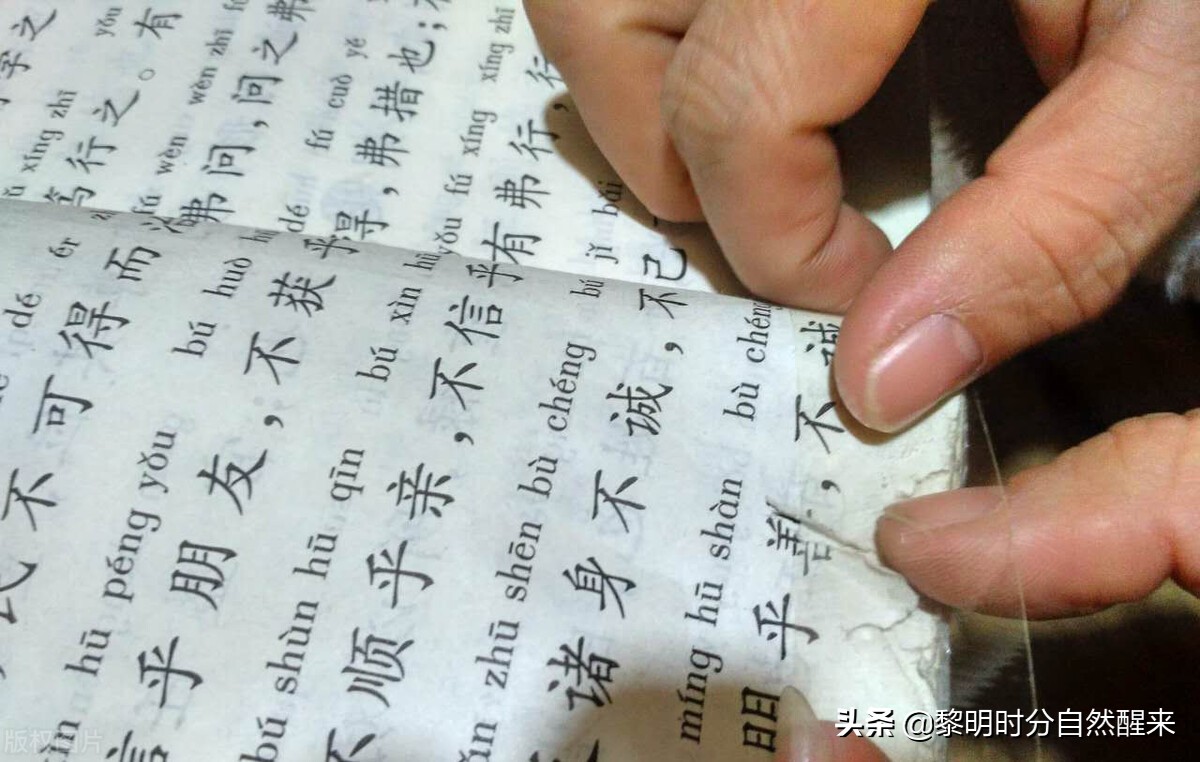 之
xíng zhī yǒu
笃行之。有
wèn wèn zhī
弗问,问之弗
dé fú cuò yě
得,弗措也;
yǒu fú xíng xíng zhī
有弗行,行
jǐ bǎi
己
dé ér
民不可得而
hū péng yǒu bú huò
信乎朋友,不获乎
bú shùn hū qīn bú xìn hū
不顺乎亲,不信乎
zhū shēn bù chéng bú
诸身不诚,不
míng hū shàn bù chéng
明乎善,不诚
版权图片
头条 @黎明时分自然醒来